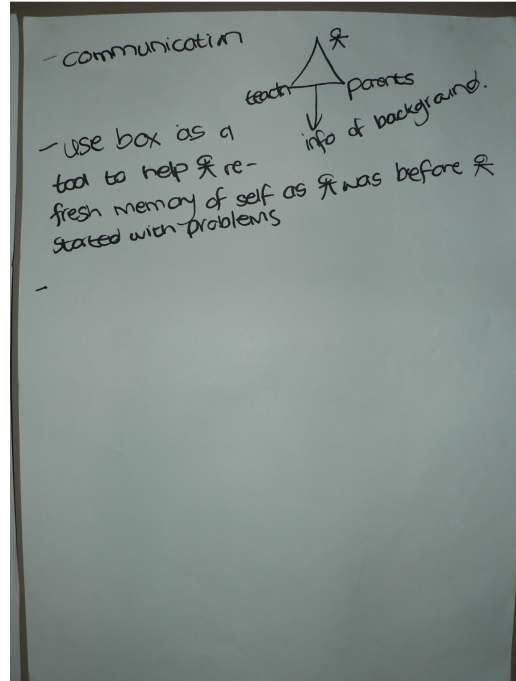 - communication
teach
parents
info of background.
- use box as a
tool to help 옷 re-
fresh memory of self as 옷 was before 옷
started with problems
-